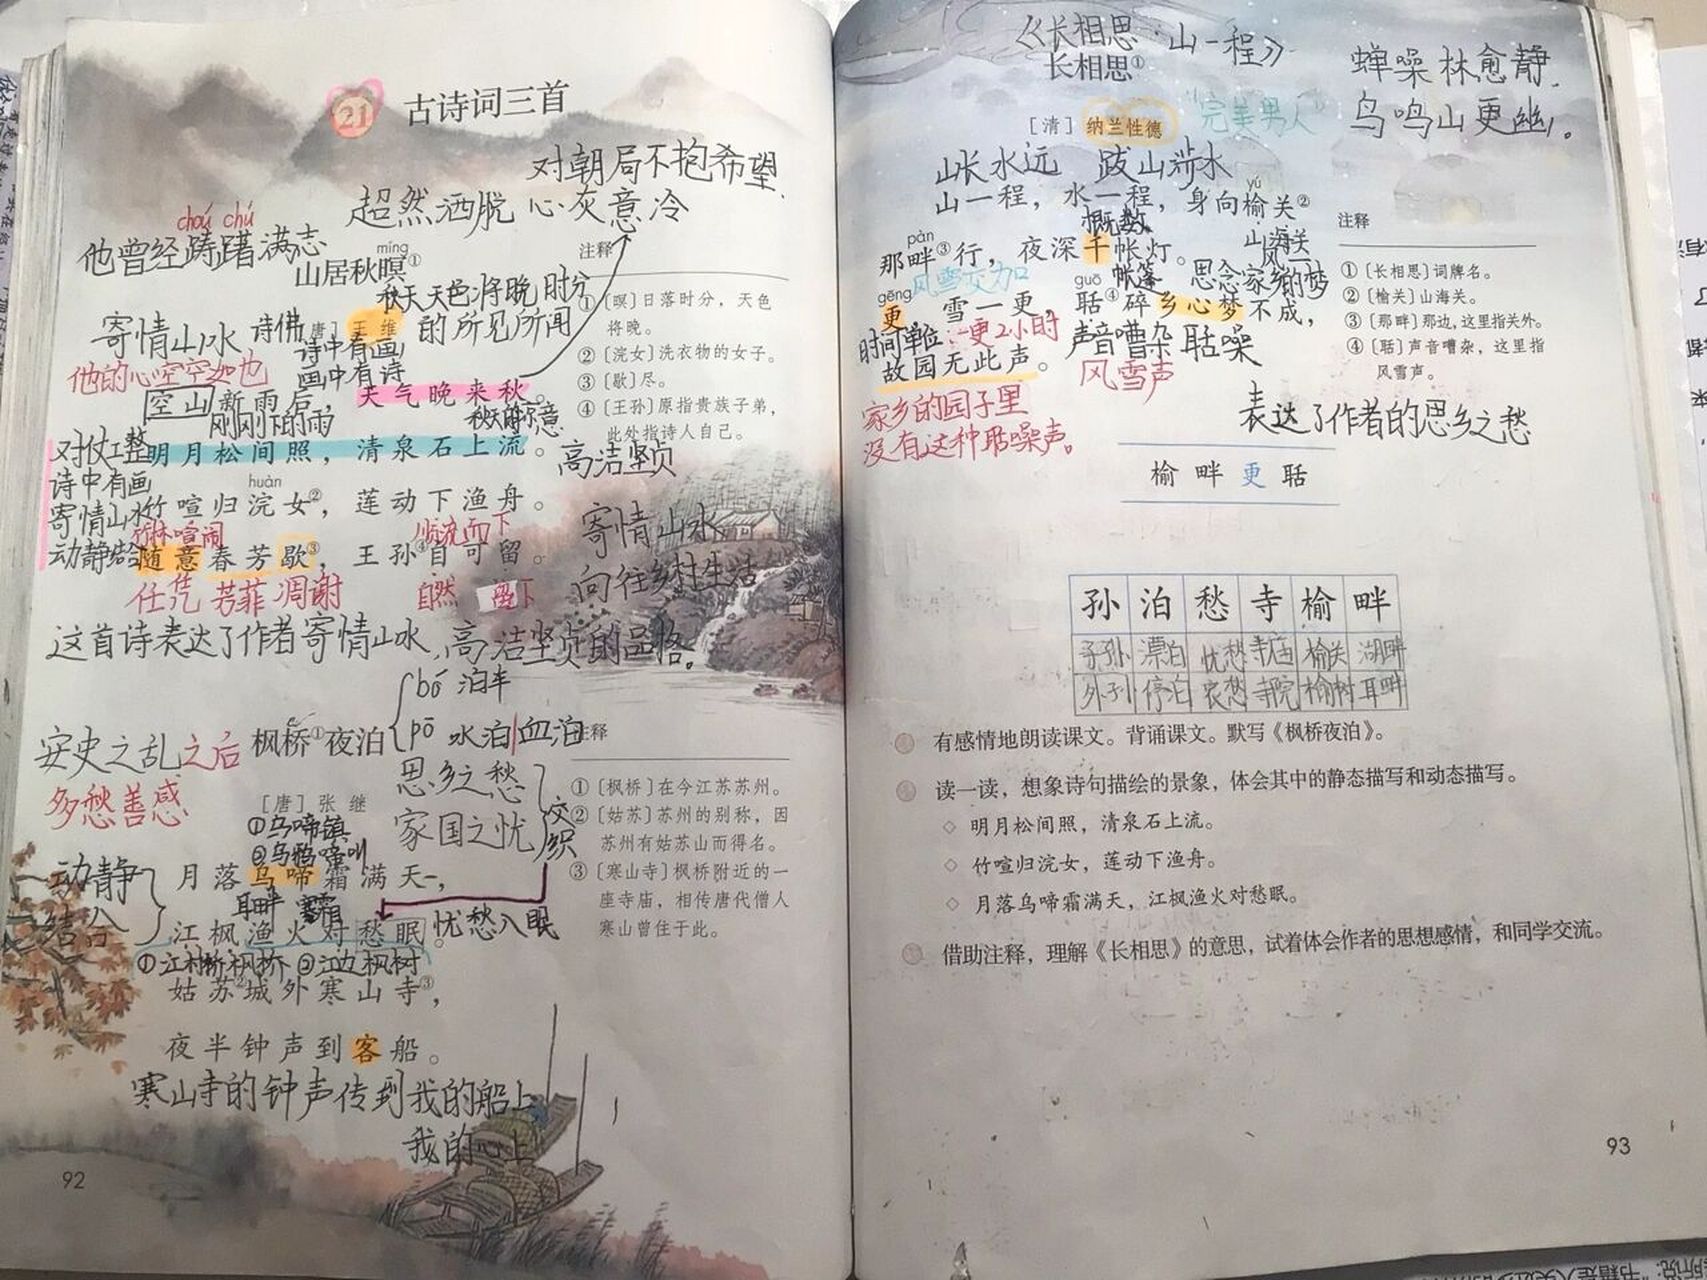 21 古诗词三首
对朝局不抱希望
超然洒脱 心灰意冷
chóu chú
他曾经踌躇满志
míng
山居秋暝①
秋天天色将晚时分
的所见所闻
寄情山水 诗佛
[唐] 王维
诗中有画
画中有诗
他的心空空如也
空山新雨后，天气晚来秋。
刚刚下的雨 秋天的凉意
对仗工整
明月松间照，清泉石上流。
高洁坚贞
诗中有画
huàn
竹喧归浣女②，莲动下渔舟。
寄情山水
竹林喧闹 顺流而下
动静结合
随意春芳歇③，王孙④自可留。
任凭 芳菲 凋谢 自然 留下
寄情山水
向往乡村生活
这首诗表达了作者寄情山水,高洁坚贞的品格。
注释
①〔暝〕日落时分，天色
将晚。
②〔浣女〕洗衣物的女子。
③〔歇〕尽。
④〔王孙〕原指贵族子弟，
此处指诗人自己。
bó 泊车
pō 水泊 血泊
安史之乱之后
枫桥①夜泊
多愁善感
思乡之愁
家国之忧
交织
[唐] 张继
①乌啼镇
②乌鸦啼叫
动静结合
月落乌啼霜满天，
耳畔 寒霜
江枫渔火对愁眠。
忧愁入眠
①江村桥枫桥 ②江边枫树
姑苏②城外寒山寺③，
夜半钟声到客船。
寒山寺的钟声传到我的船上
我的心上
注释
①〔枫桥〕在今江苏苏州。
②〔姑苏〕苏州的别称，因
苏州有姑苏山而得名。
③〔寒山寺〕枫桥附近的一
座寺庙，相传唐代僧人
寒山曾住于此。
92
《长相思·山一程》
长相思①
蝉噪林愈静
鸟鸣山更幽。
[清] 纳兰性德
“完美男人”
山长水远 跋山涉水
yú
山一程，水一程，身向榆关②
概数 山海关
pàn
那畔③行，夜深千帐灯。
风雪交加 帐篷 思念家乡的梦
gēng guō
风一更，雪一更，聒④碎乡心梦不成，
时间单位:一更2小时 声音嘈杂 聒噪
故园无此声。
风雪声
家乡的园子里
没有这种聒噪声。
表达了作者的思乡之愁
注释
①〔长相思〕词牌名。
②〔榆关〕山海关。
③〔那畔〕那边,这里指关外。
④〔聒〕声音嘈杂，这里指
风雪声。
榆 畔 更 聒
孙 泊 愁 寺 榆 畔
子孙 漂泊 忧愁 寺庙 榆关 湖畔
外孙 停泊 哀愁 寺院 榆树 耳畔
有感情地朗读课文。背诵课文。默写《枫桥夜泊》。
读一读，想象诗句描绘的景象，体会其中的静态描写和动态描写。
◇ 明月松间照，清泉石上流。
◇ 竹喧归浣女，莲动下渔舟。
◇ 月落乌啼霜满天，江枫渔火对愁眠。
借助注释，理解《长相思》的意思，试着体会作者的思想感情，和同学交流。
93